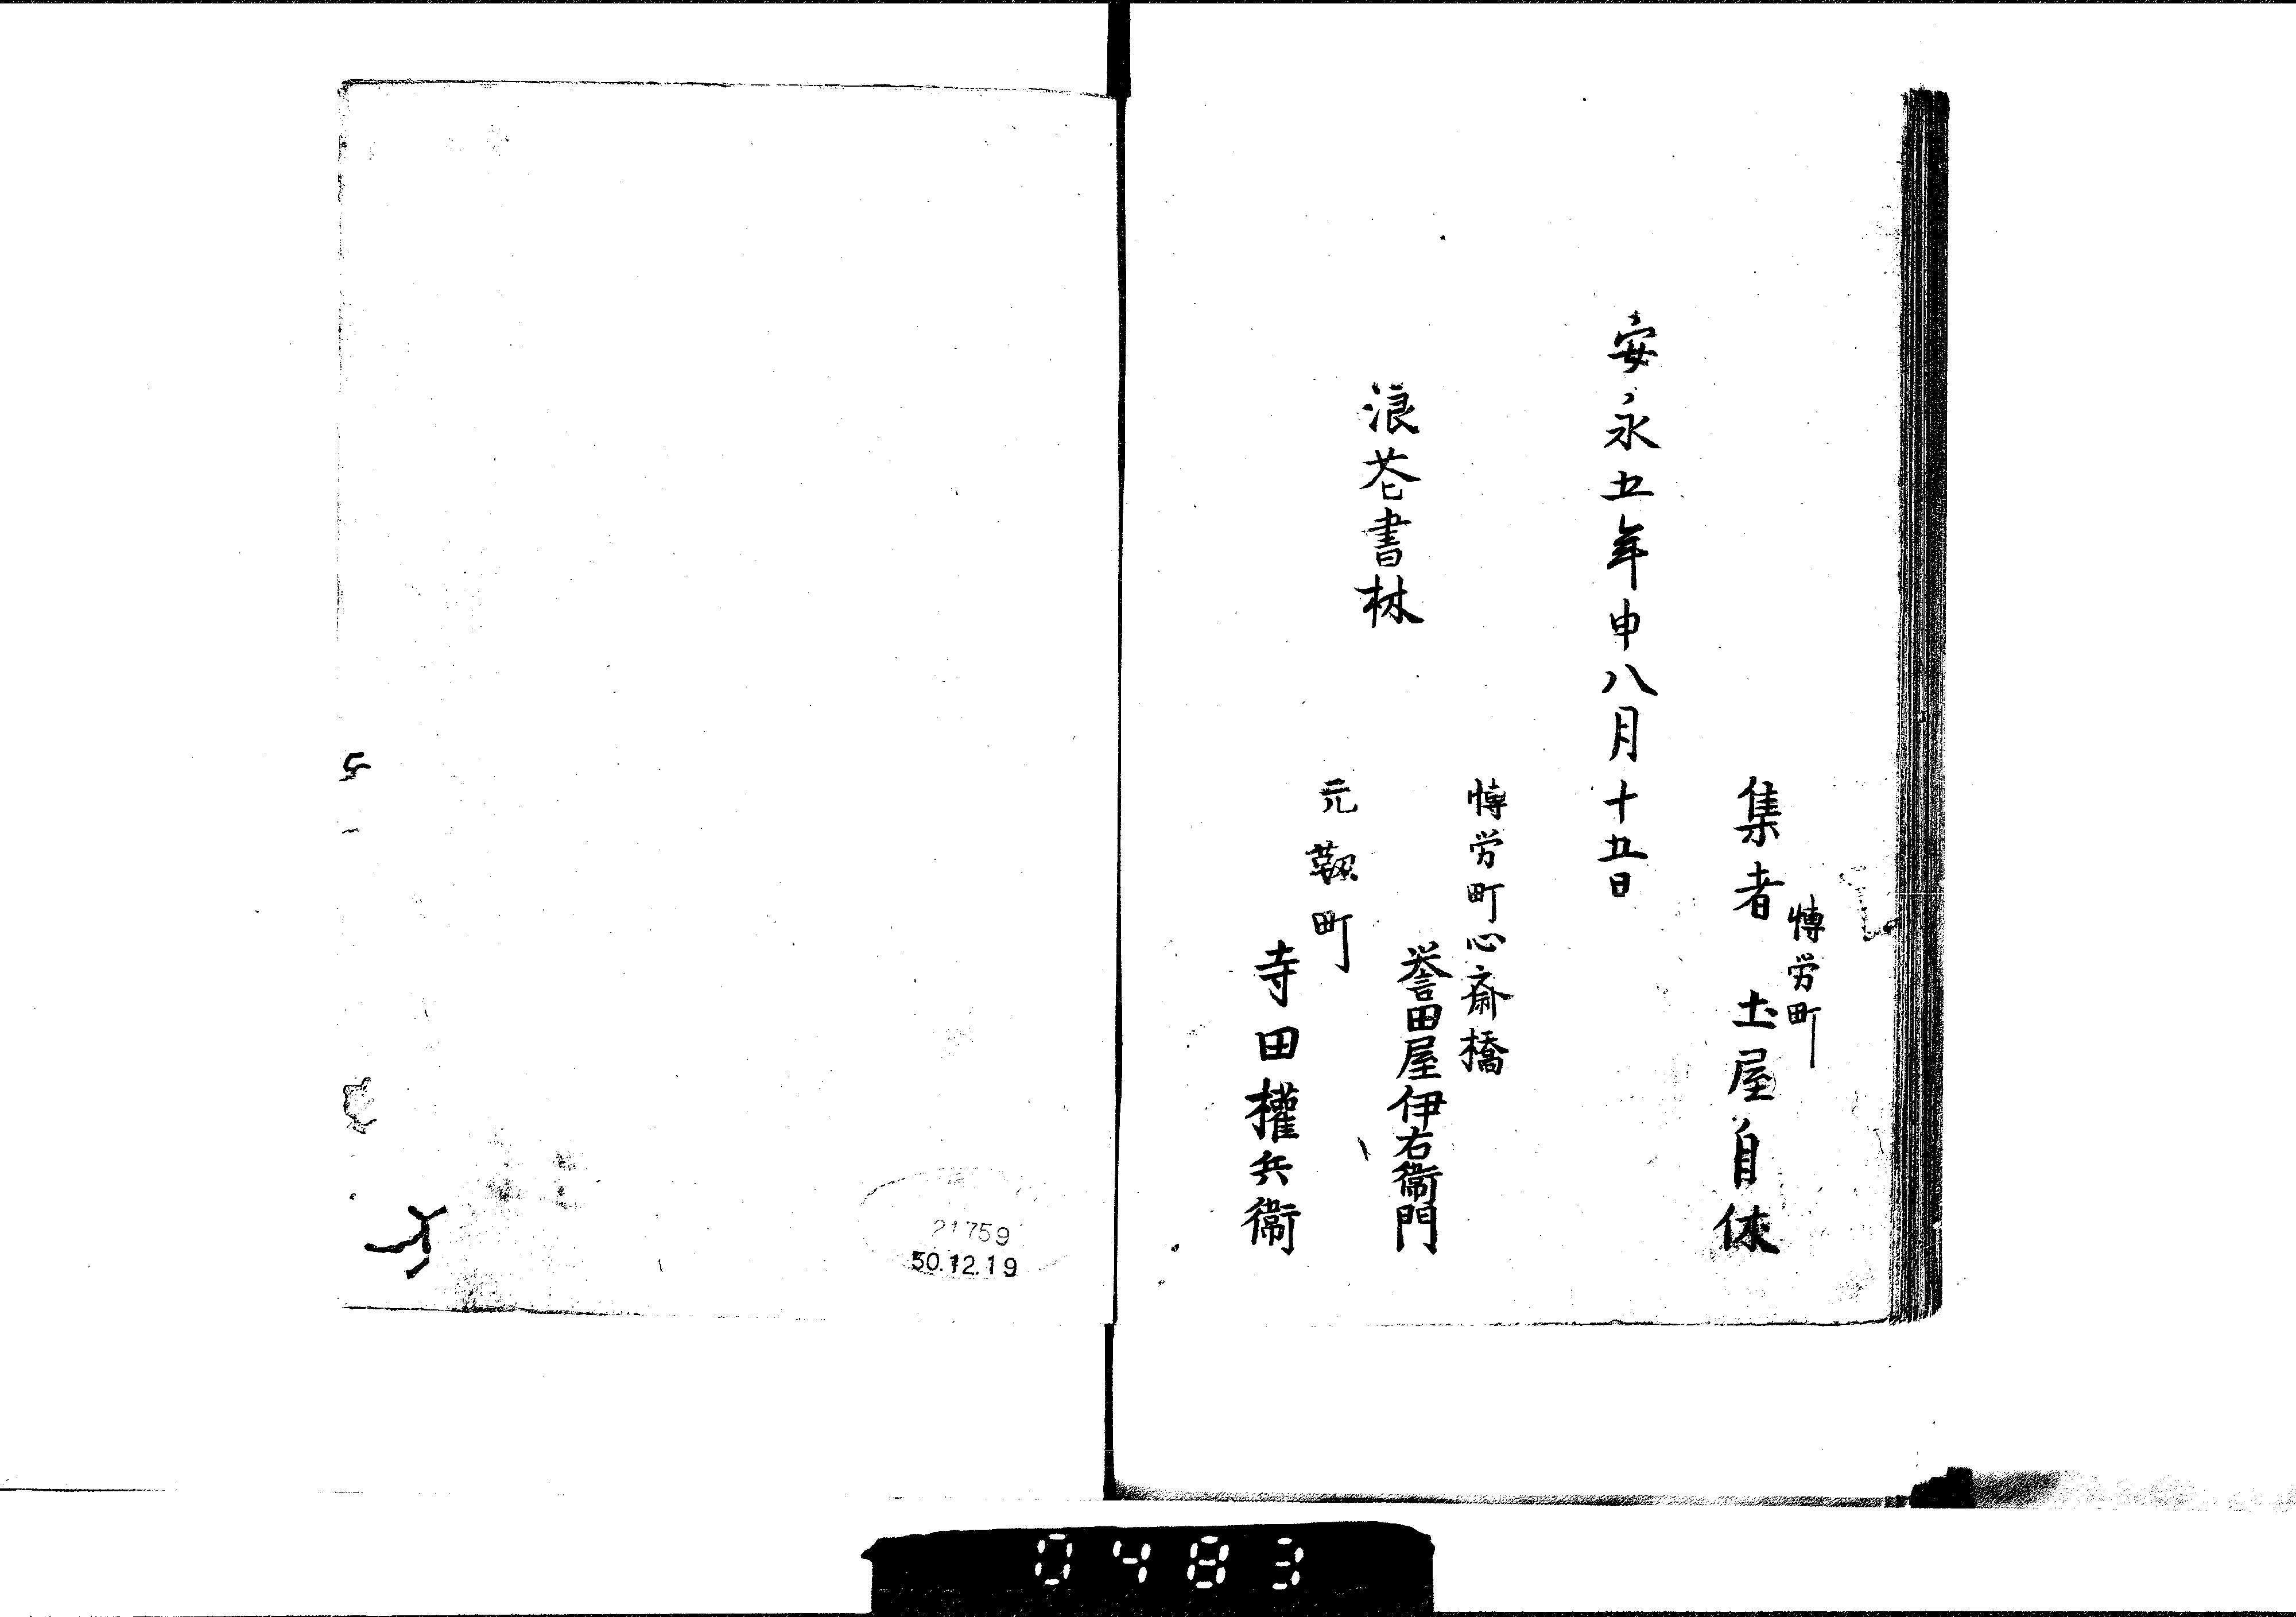 博労町
集者 土屋自休
安永五年申八月十五日
博労町心斎橋
誉田屋伊右衛門
浪花書林
元靱町
寺田權兵衛
21759
50.12.19
0483